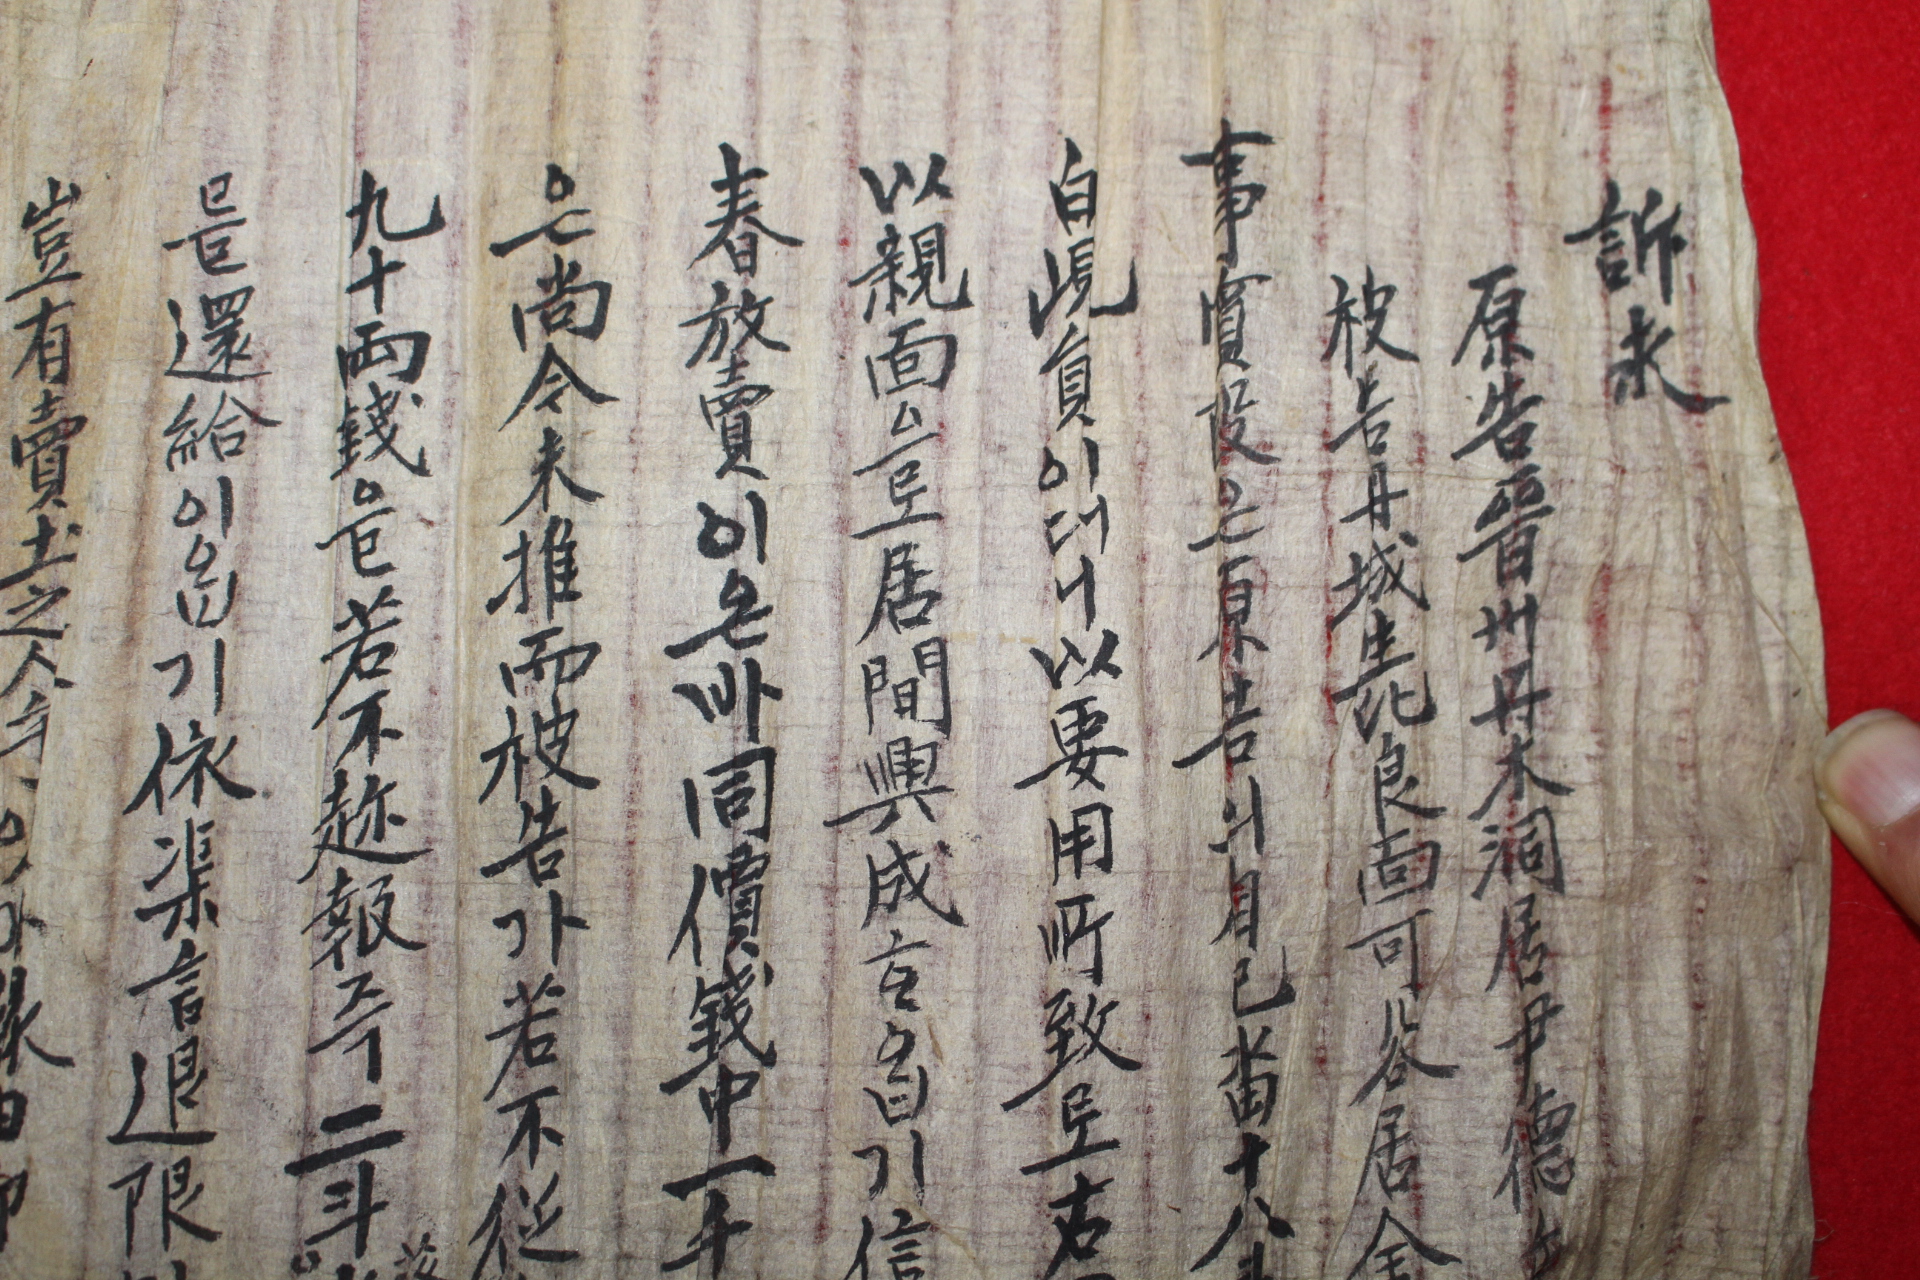 訴求
原告晋州丹木洞居尹德
被告丹城生比良面可谷居金
事實段은原告의自己畓十八斗
自 負이더니以要用所致로右
以親面으로居間興成 기信
春放賣이온바同價錢中一千
은尙今未推而被告가若不從
九十両錢을若不趂報즉二斗
를還給이옵기依渠言退限
豈有賣土之人